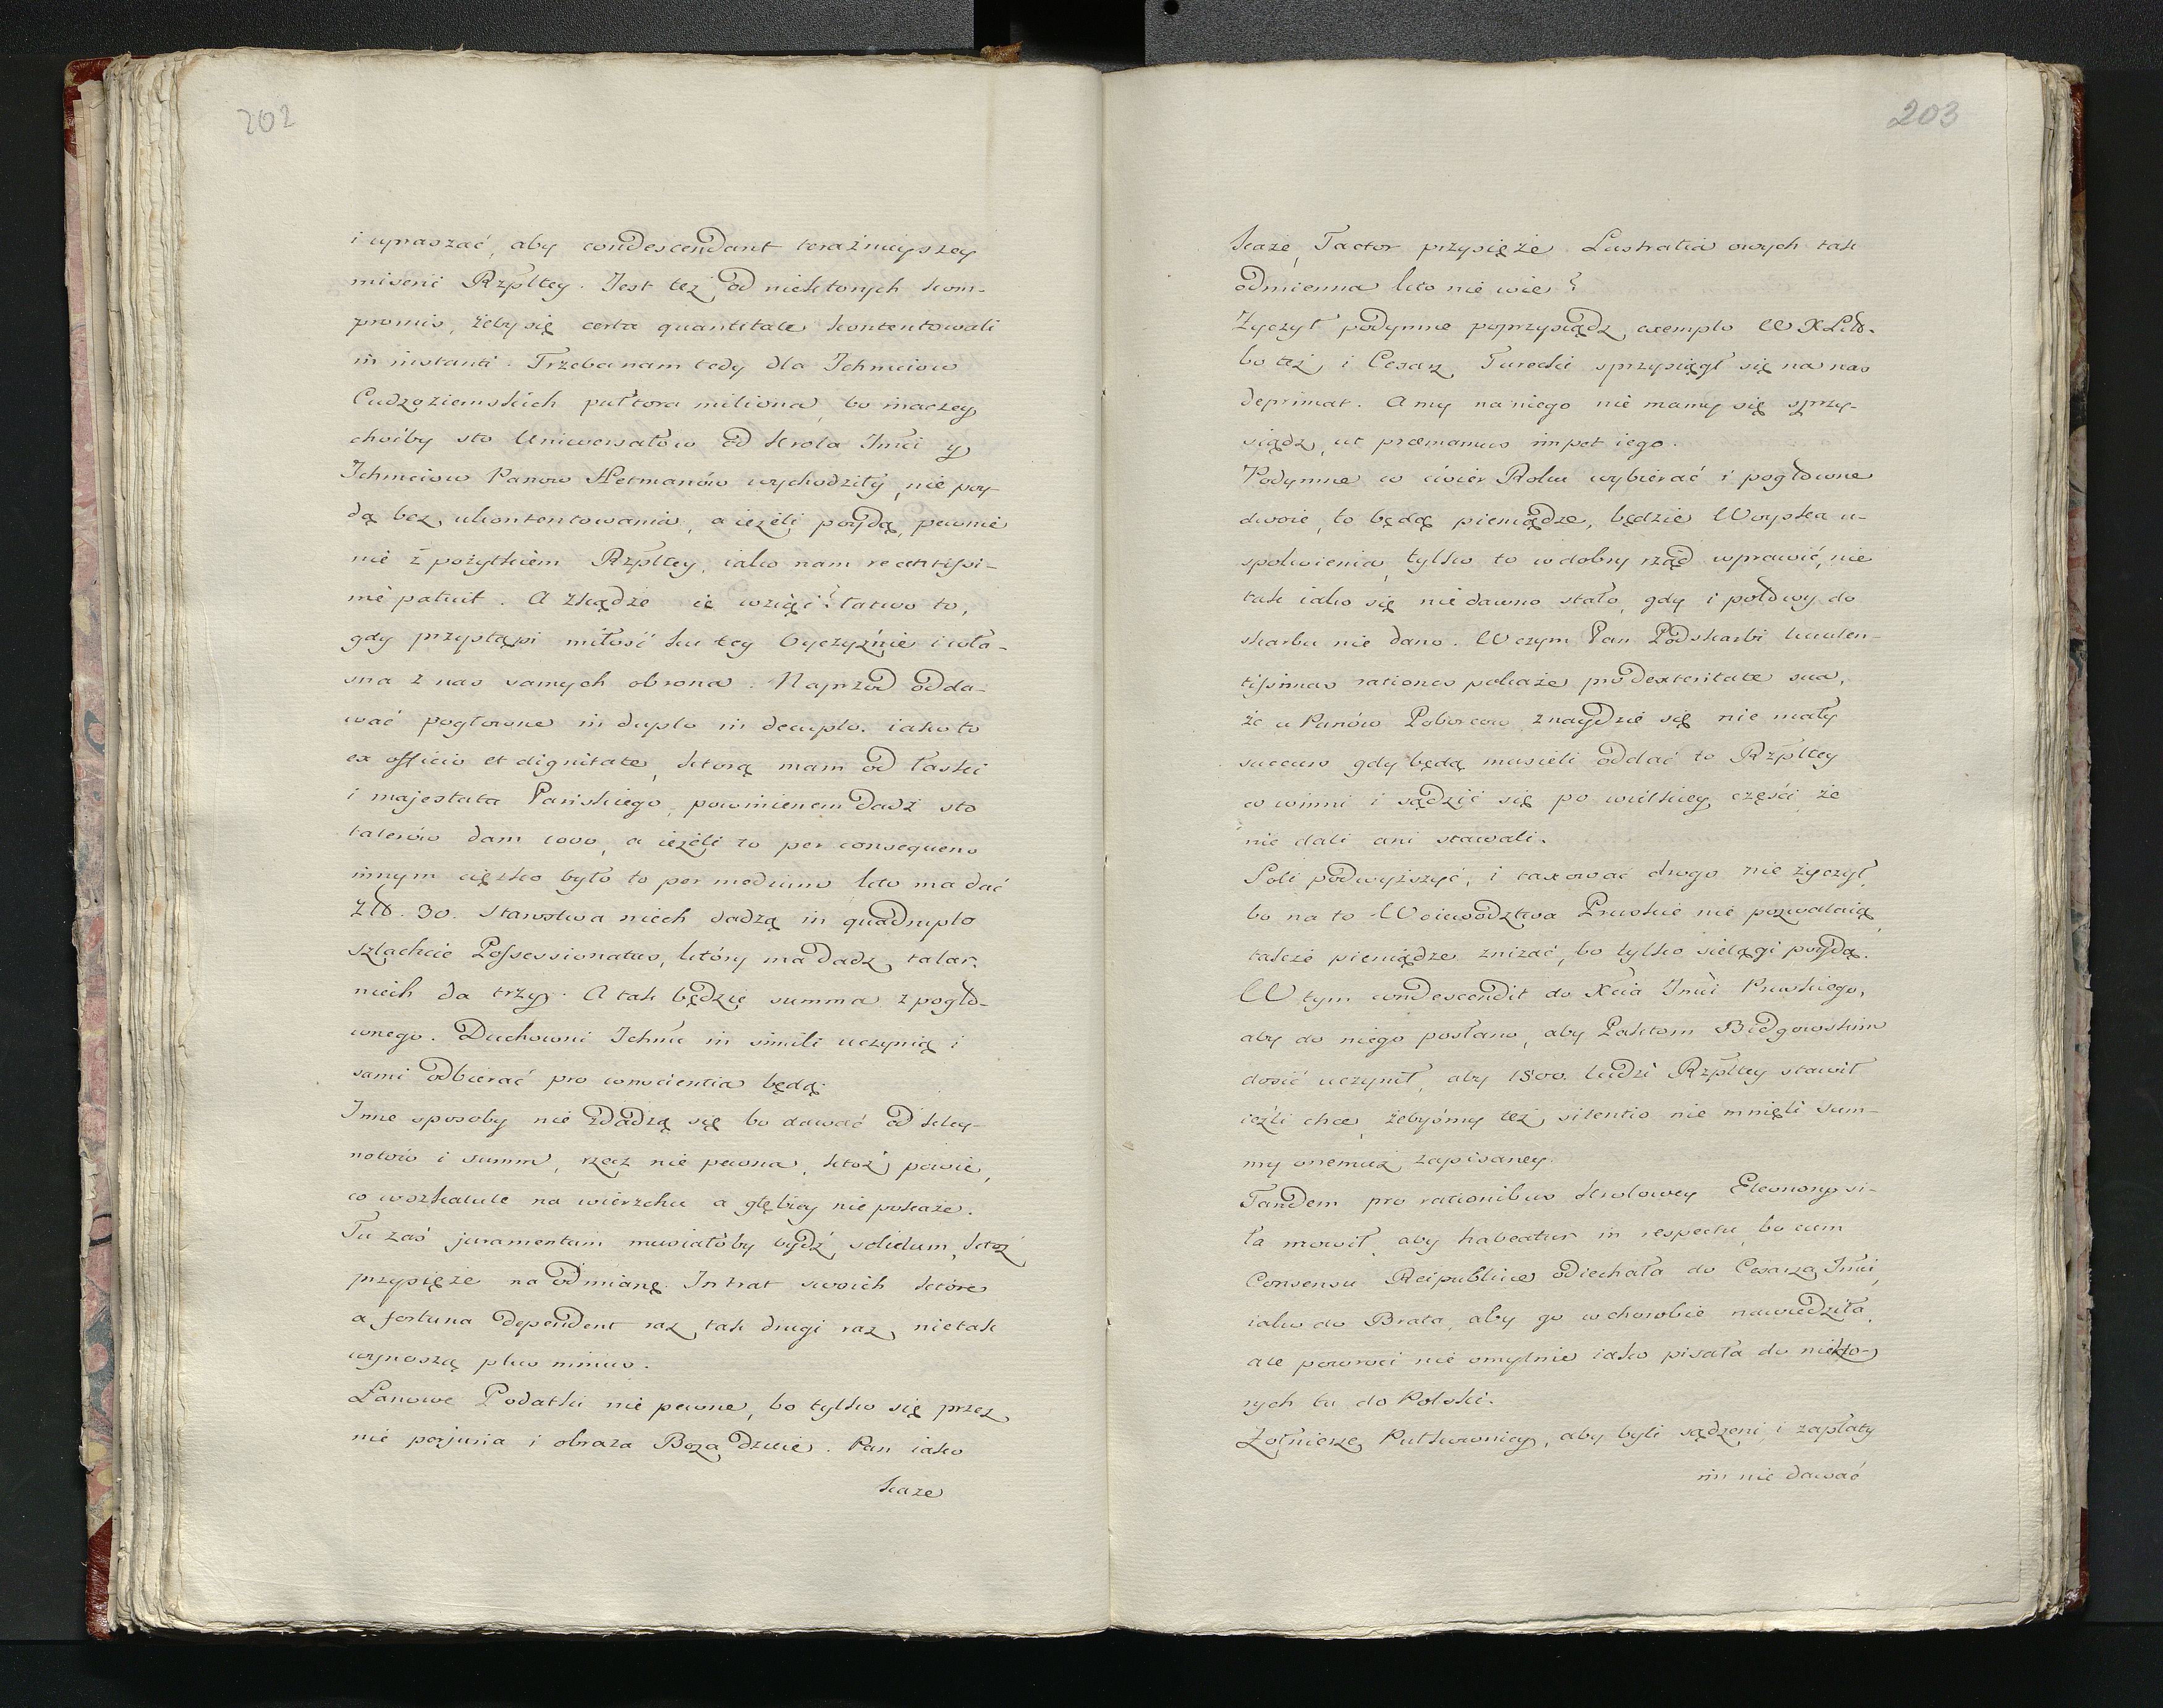 202
i upraszać, aby condescendant teraźnieyszey
miserii Rzpltey. Jest też od niektorych kom-
promis, żeby się certa quantitate kontentowali
in instanti. Trzeba nam tedy dla Ichmciow
Cudzoziemskich pułtora miliona, bo inaczey
choćby sto Uniwersałow od Krola Jmci y
Ichmciow Panow Hetmanów wychodziły, nie poy-
dą bez ukontentowania, a ieżeli poydą, pewnie
nie z pożytkiem Rzpltey, iako nam recentissi-
me patuit. A zkądże ie wziąć? łatwo to,
gdy przystąpi miłość ku tey Oyczyznie i wła-
sna z nas samych obrona. Naprzod odda-
wać pogłowne in duplo in decuplo. iako to
ex officio et dignitate, ktorą mam od łaski
i majestatu Pańskiego, powinienem dadź sto
talerów dam 1000, a ieżeli to per consequens
innym cięszko było to per medium kto ma dać
Złt. 30. Starostwa niech dadzą in quadruplo
szlachcic Possessionatus, który ma dadz talar.
niech da trzy. A tak będzie summa z pogło-
wnego. Duchowni Ichmć in simili uczynią i
sami odbierać pro conscientia będą.
Inne sposoby nie zdadzą się bo dawać od kley-
notów i summ, rzecz nie pewna, ktoż powie,
co w szkatule na wierzchu a głębiey nie pokaże.
Tu zaś juramentum musiałoby bydź solidum, ktoż
przysięże na odmianę Intrat swoich które
a fortuna dependent raz tak drugi raz nie tak
wynoszą plus minus.
Łanowe Podatki nie pewne, bo tylko się przez
nie perjuria i obraza Boza dzieie. Pan iako
kaze
203
kaze, Factor przysięże. Lustratia owych tak
odmienna kto nie wie?
Zyczył podymne poprzysiądz exemplo W X Litt.
bo też i Cesarz Turecki sprzysiągł się na nas
deprimat. A my na niego nie mamy się sprzy-
siądz, ut præmamus impet iego.
Podymne co ćwier Roku wybierać i pogłowne
dwoie, to będą pieniądze, będzie Woyska u-
spokoienia, tylko to w dobry rząd wprawić, nie
tak iako się nie dawno stało, gdy i połowy do
skarbu nie dano. W czym Pan Podskarbi luculen-
tissimas rationes pokaże pro dexteritate sua,
że u Panów Poborcow znaydzie się nie mały
succurs gdy będą musieli oddać to Rzpltey
co winni i sądzić się po wielkiey części że
nie dali ani stawali.
Soli podwyższyć, i taxować drogo nie życzył,
bo na to Woiewodztwa Pruskie nie pozwalaią,
także pieniądze znizać, bo tylko sielągi poydą.
W tym condescendit do Xcia Jmći Pruskiego,
aby do niego posłano, aby Paktom Bidgowskim
dosić uczynił, aby 1500. ludzi Rzpltey stawił
ieźli chce, żebyśmy też silentio nie minęli sum-
my onemuż zapisaney.
Tandem pro rationibus Krolowey Eleonory si-
ła mowił, aby habeatur in respectu, bo cum
Consensu Reipublicæ odiechała do Cesarza Jmci,
iako do Brata, aby go w chorobie nawiedziła,
ale powroci nie omylnie iako pisała do niekto-
rych tu do Polski.
Żołnierze Pułkownicy, aby byli sądzeni, i zapłaty
im nie dawać